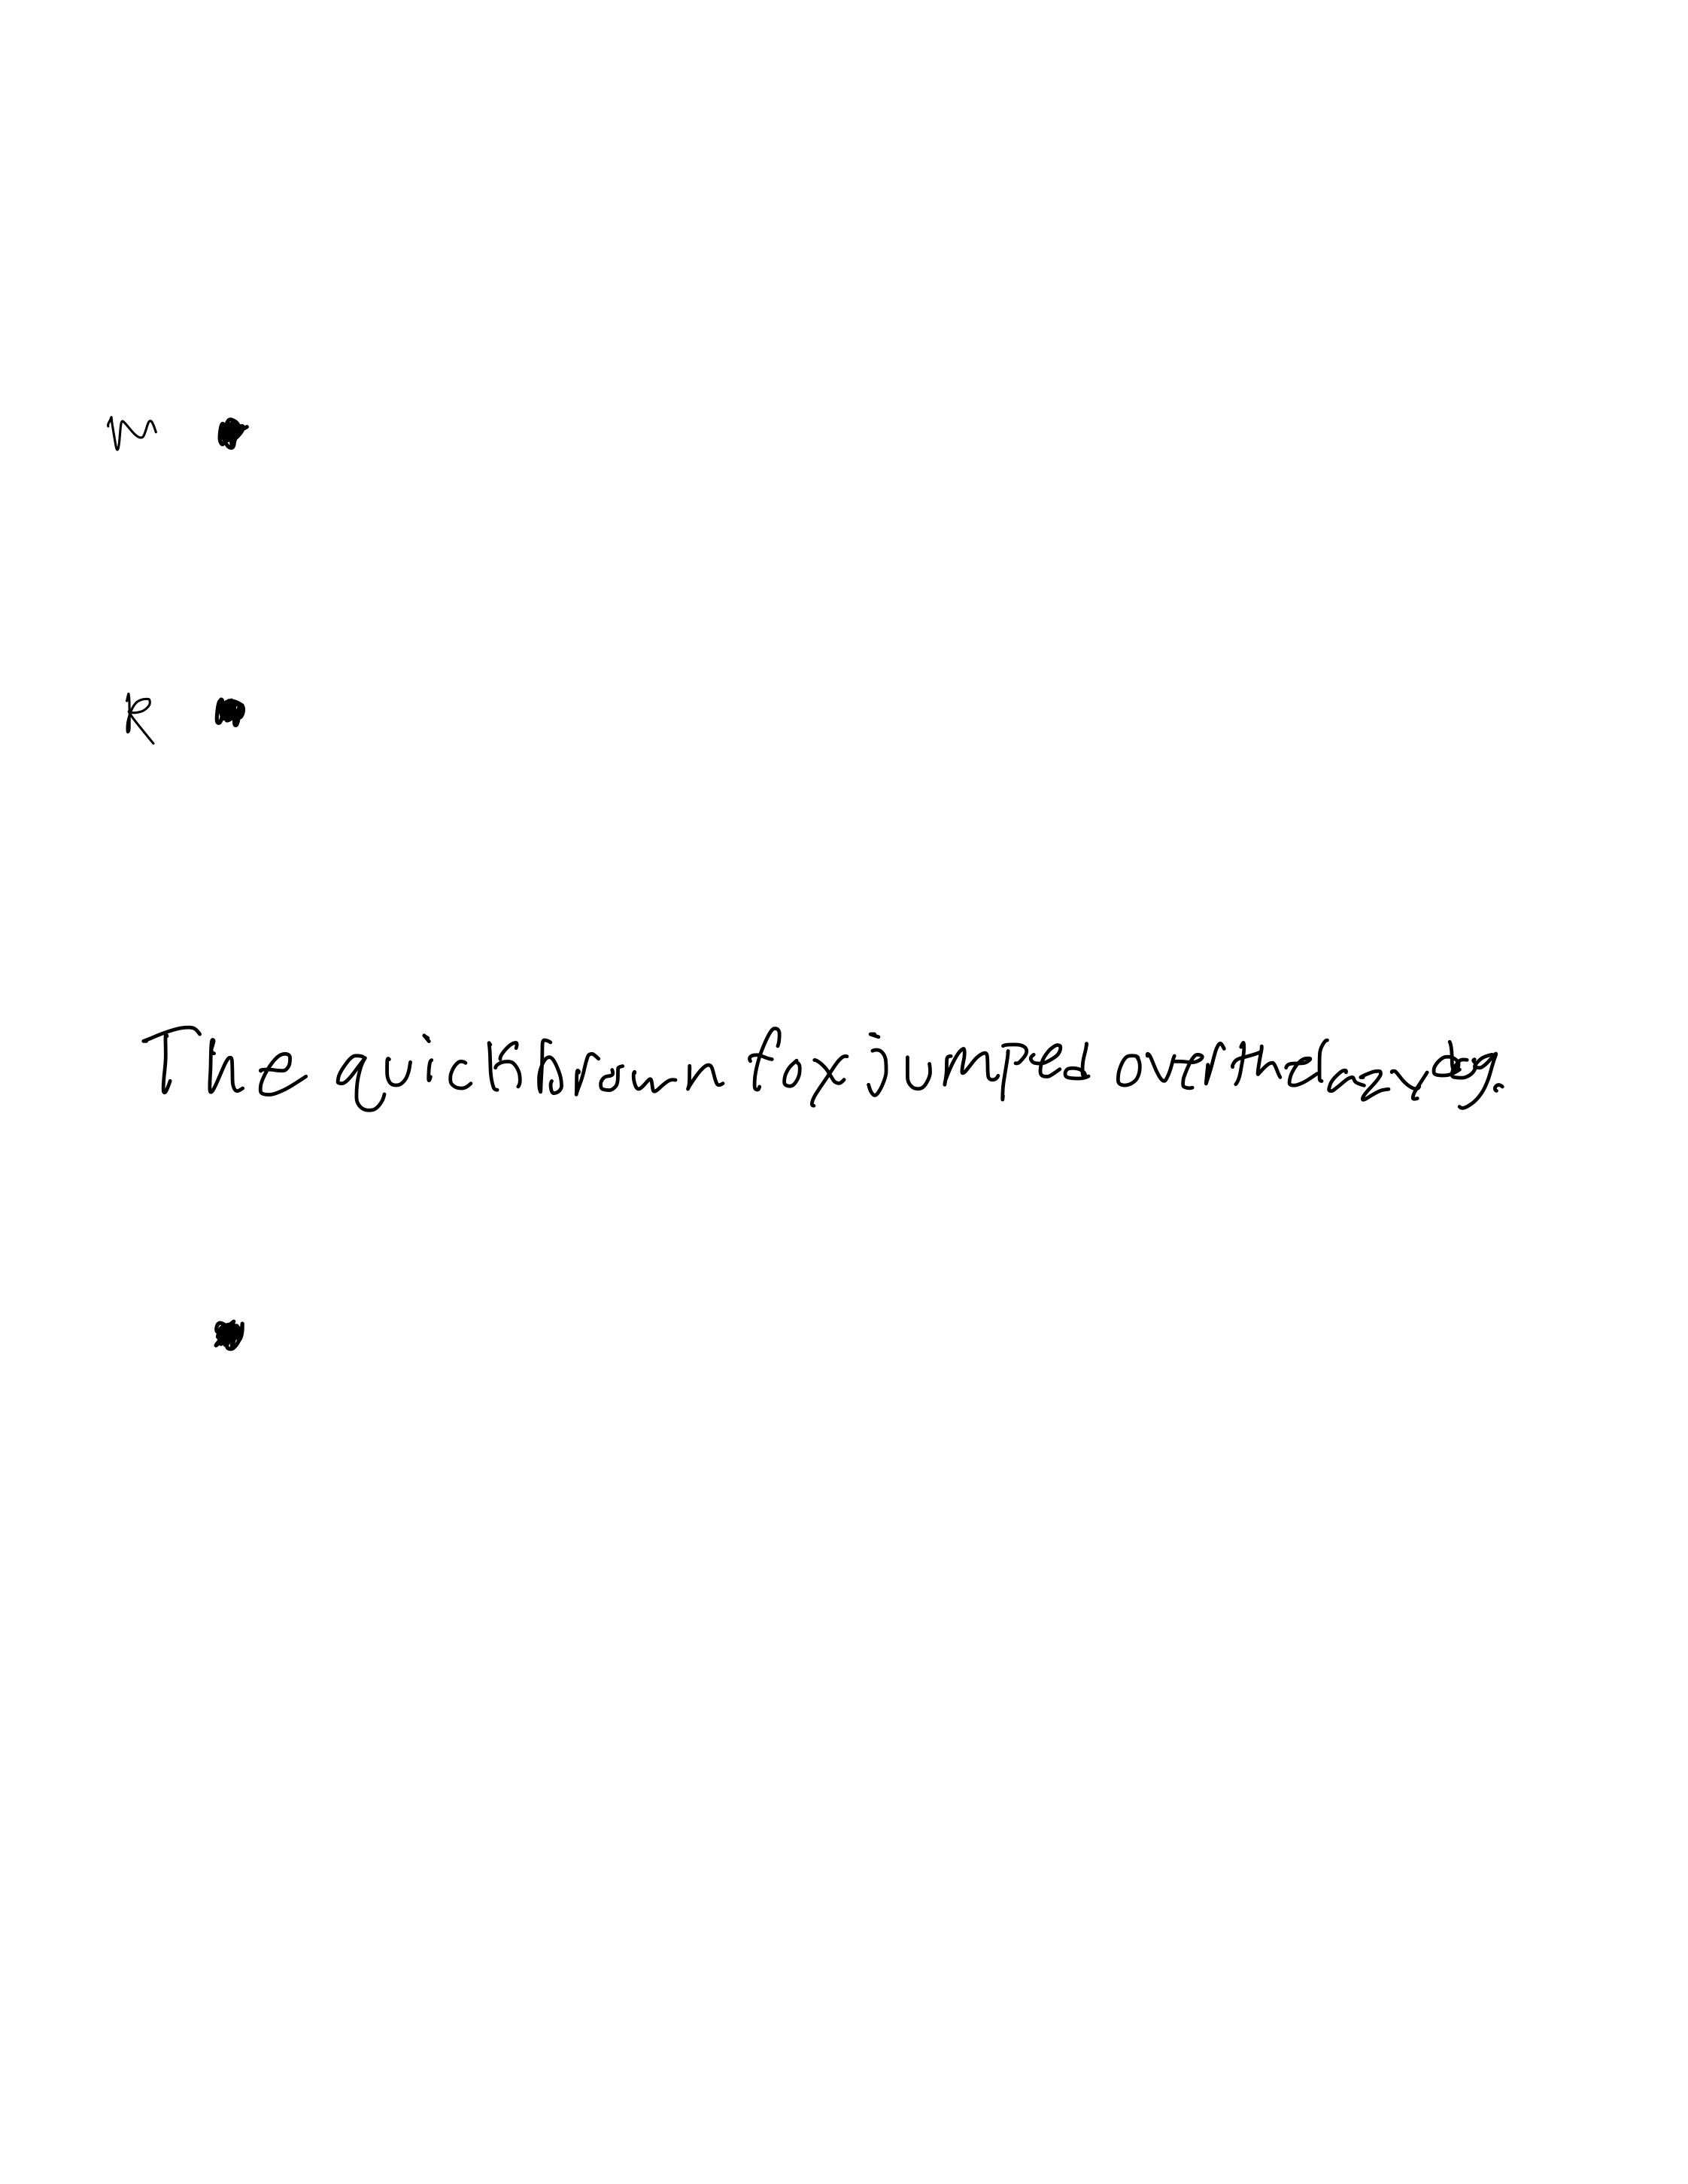 m
R
The quick brown fox jumped over the lazy dog.